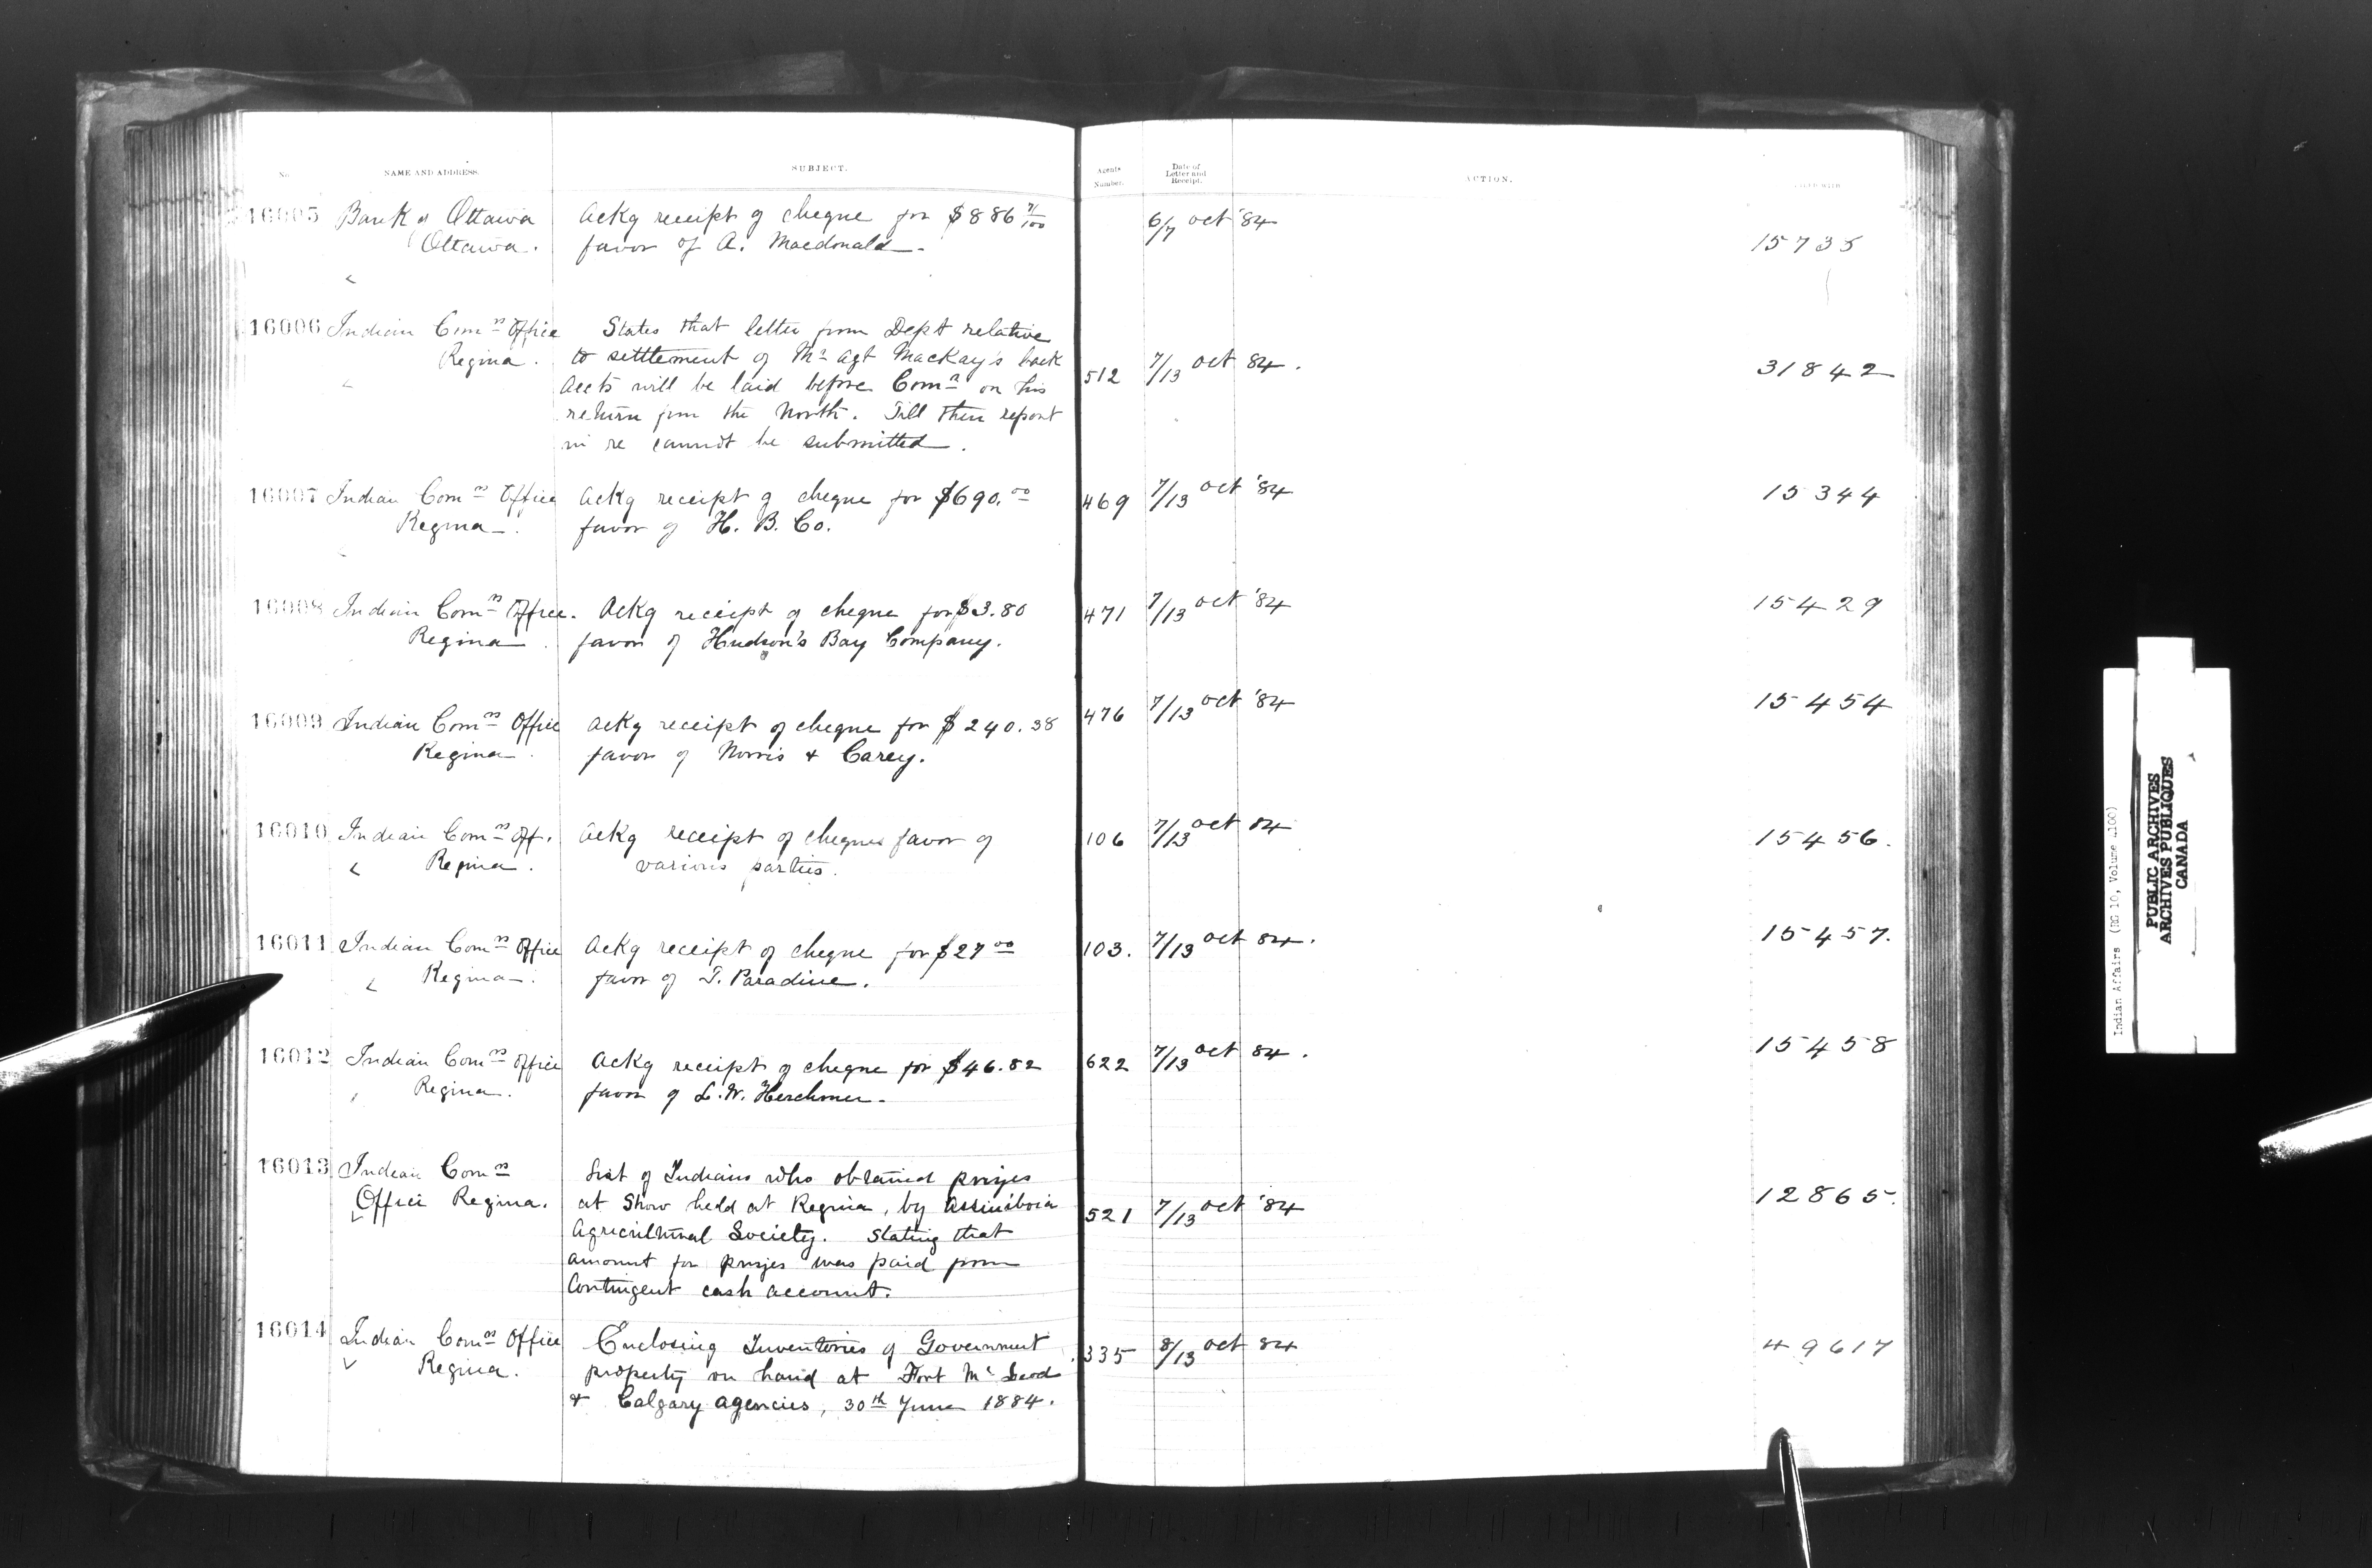 No. NAME AND ADDRESS. SUBJECT. Agents Number. Date of Letter and Receipt. ACTION. FILED WITH
16005 Bank of Ottawa Ackg receipt of cheque for $886 71/100 6/7 Oct '84
Ottawa. favor of A. Macdonald. 15735
16006 Indian Comn Office States that letter from Dept relative
Regina. to settlement of Mr Agt MacKay's back 512 7/13 Oct 84. 31842
Accts will be laid before Comn on his
return from the North. Till then report
in re cannot be submitted.
16007 Indian Comn Office Ackg receipt of cheque for $690.00 469 7/13 Oct '84 15344
Regina. favor of H. B. Co.
16008 Indian Comn Office. Ackg receipt of cheque for $3.80 471 7/13 Oct '84 15429
Regina. favor of Hudson's Bay Company.
16009 Indian Comn Office Ackg receipt of cheque for $240.38 476 7/13 Oct '84 15454
Regina. favor of Norris & Carey.
16010 Indian Comn Off. Ackg receipt of cheques favor of 106 7/13 Oct 84 15456.
Regina. various parties.
16011 Indian Comn Office Ackg receipt of cheque for $27 00 103. 7/13 Oct 84. 15457.
Regina. favor of T. Paradine.
16012 Indian Comn Office Ackg receipt of cheque for $46.82 622 7/13 Oct 84. 15458
Regina. favor of L. W. Herchmer.
16013 Indian Comn List of Indians who obtained prizes
Office Regina. at Show held at Regina, by Assiniboia 521 7/13 Oct '84 12865.
Agricultural Society. Stating that
amount for prizes was paid from
Contingent cash account.
16014 Indian Comn Office Enclosing Inventories of Government 335 8/13 Oct 84 49617
Regina. property on hand at Fort McLeod
& Calgary agencies, 30th June 1884.
Indian Affairs (RG 10, Volume 4100)
PUBLIC ARCHIVES
ARCHIVES PUBLIQUES
CANADA